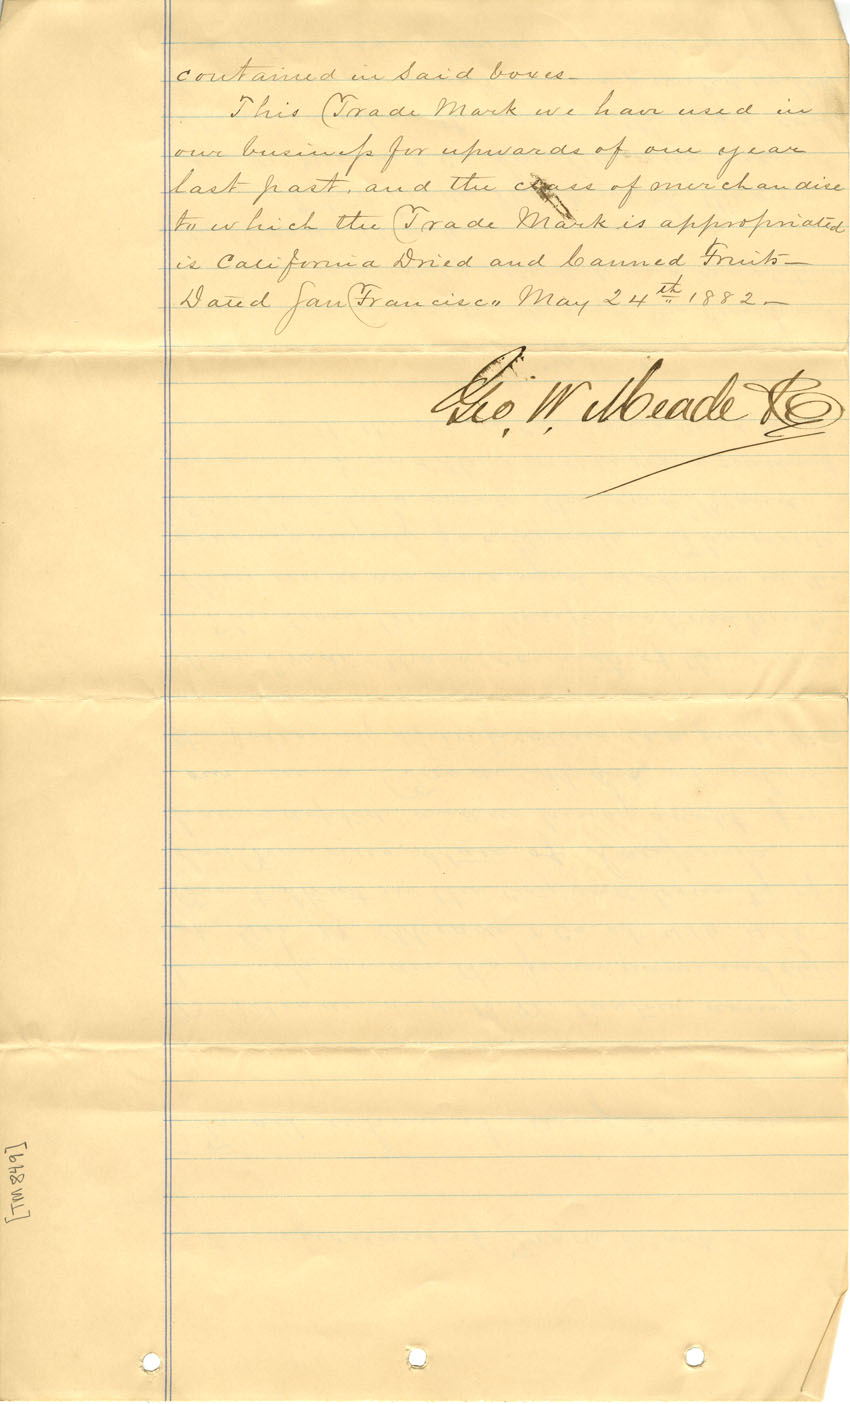 contained in said boxes—
This Trade Mark we have used in
our business for upwards of one year
last past, and the class of merchandise
to which the Trade Mark is appropriated
is California Dried and Canned Fruits—
Dated San Francisco May 24th 1882—
Geo. W. Meade & Co
[TM849]